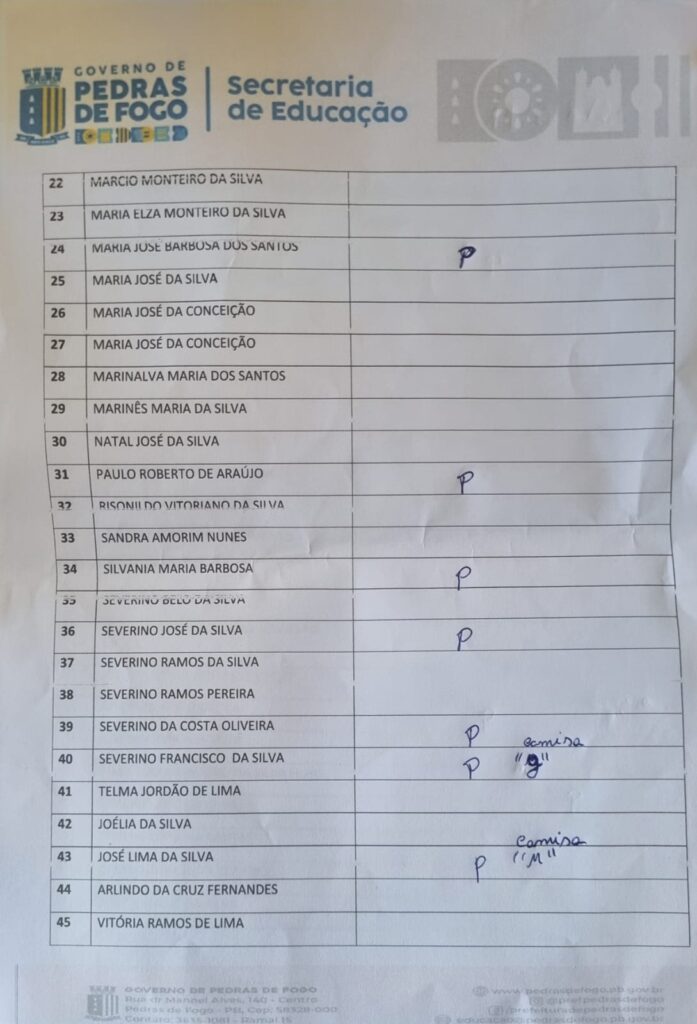 GOVERNO DE
PEDRAS
DE FOGO
Secretaria
de Educação
22 MARCIO MONTEIRO DA SILVA
23 MARIA ELZA MONTEIRO DA SILVA
24 MARIA JOSÉ BARBOSA DOS SANTOS P
25 MARIA JOSÉ DA SILVA
26 MARIA JOSÉ DA CONCEIÇÃO
27 MARIA JOSÉ DA CONCEIÇÃO
28 MARINALVA MARIA DOS SANTOS
29 MARINÊS MARIA DA SILVA
30 NATAL JOSÉ DA SILVA
31 PAULO ROBERTO DE ARAÚJO P
32 RISONILDO VITORIANO DA SILVA
33 SANDRA AMORIM NUNES
34 SILVANIA MARIA BARBOSA P
35 SEVERINO BELO DA SILVA
36 SEVERINO JOSÉ DA SILVA P
37 SEVERINO RAMOS DA SILVA
38 SEVERINO RAMOS PEREIRA
39 SEVERINO DA COSTA OLIVEIRA P camisa
40 SEVERINO FRANCISCO DA SILVA P "g"
41 TELMA JORDÃO DE LIMA
42 JOÉLIA DA SILVA
Camisa
43 JOSÉ LIMA DA SILVA P "M"
44 ARLINDO DA CRUZ FERNANDES
45 VITÓRIA RAMOS DE LIMA
GOVERNO DE PEDRAS DE FOGO
Rua dr Manoel Alves, 140 - Centro
Pedras de Fogo - PB, Cep: 58328-000
Contato: 3635-1081 - Ramal 15
www.pedrasdefogo.pb.gov.br
@prefpedrasdefogo
/prefeituradepedrasdefogo
educacao@pedrasdefogo.pb.gov.br